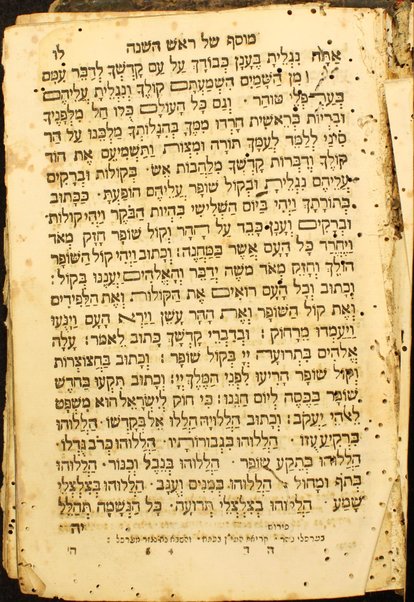 מוסף של ראש השנה
לו
אַתָּה נִגְלֵיתָ בַּעֲנַן כְּבוֹדֶךָ עַל עַם קָדְשְׁךָ לְדַבֵּר עִמָּם
וּמִן הַשָּׁמַיִם הִשְׁמַעְתָּם קוֹלֶךָ וְנִגְלֵיתָ עֲלֵיהֶם
טוֹהַר · וְגַם כָּל הָעוֹלָם כֻּלּוֹ חָל מִלְּפָנֶיךָ
וּבְרִיּוֹת בְּרֵאשִׁית חָרְדוּ מִמֶּךָּ בְּהִגָּלוֹתְךָ מַלְכֵּנוּ עַל הַר
סִינַי לְלַמֵּד לְעַמְּךָ תּוֹרָה וּמִצְוֹת וַתַּשְׁמִיעֵם אֶת הוֹד
קוֹלֶךָ וְדִבְּרוֹת קָדְשְׁךָ מִלַּהֲבוֹת אֵשׁ · בְּקוֹלוֹת וּבְרָקִים
עֲלֵיהֶם נִגְלֵיתָ וּבְקוֹל שׁוֹפָר עֲלֵיהֶם הוֹפָעְתָּ · כַּכָּתוּב
בְּתוֹרָתֶךָ וַיְהִי בַיּוֹם הַשְּׁלִישִׁי בִּהְיוֹת הַבֹּקֶר וַיְהִי קוֹלוֹת
וּבְרָקִים וְעָנָן כָּבֵד עַל הָהָר וְקוֹל שׁוֹפָר חָזָק מְאֹד
וַיֶּחֱרַד כָּל הָעָם אֲשֶׁר בַּמַּחֲנֶה: וְכָתוּב וַיְהִי קוֹל הַשּׁוֹפָר
הוֹלֵךְ וְחָזֵק מְאֹד מֹשֶׁה יְדַבֵּר וְהָאֱלֹהִים יַעֲנֶנּוּ בְקוֹל:
וְכָתוּב וְכָל הָעָם רוֹאִים אֶת הַקּוֹלוֹת וְאֶת הַלַּפִּידִים
וְאֵת קוֹל הַשּׁוֹפָר וְאֶת הָהָר עָשֵׁן וַיַּרְא הָעָם וַיָּנֻעוּ
וַיַּעַמְדוּ מֵרָחוֹק: וּבְדִבְרֵי קָדְשְׁךָ כָּתוּב לֵאמֹר: עָלָה
אֱלֹהִים בִּתְרוּעָה יְיָ בְּקוֹל שׁוֹפָר: וְכָתוּב בַּחֲצוֹצְרוֹת
וְקוֹל שׁוֹפָר הָרִיעוּ לִפְנֵי הַמֶּלֶךְ יְיָ: וְכָתוּב תִּקְעוּ בַחֹדֶשׁ
שׁוֹפָר בַּכֶּסֶה לְיוֹם חַגֵּנוּ: כִּי חוֹק לְיִשְׂרָאֵל הוּא מִשְׁפָּט
לֵאלֹהֵי יַעֲקֹב: וְכָתוּב הַלְלוּיָהּ הַלְלוּ אֵל בְּקָדְשׁוֹ הַלְלוּהוּ
בִּרְקִיעַ עֻזּוֹ · הַלְלוּהוּ בִגְבוּרוֹתָיו · הַלְלוּהוּ כְּרֹב גֻּדְלוֹ ·
הַלְלוּהוּ בְּתֵקַע שׁוֹפָר · הַלְלוּהוּ בְּנֵבֶל וְכִנּוֹר · הַלְלוּהוּ
בְּתֹף וּמָחוֹל · הַלְלוּהוּ בְּמִנִּים וְעֻגָב · הַלְלוּהוּ בְצִלְצְלֵי
שָׁמַע הַלְלוּהוּ בְּצִלְצְלֵי תְרוּעָה · כֹּל הַנְּשָׁמָה תְּהַלֵּל
יָהּ
פירוש